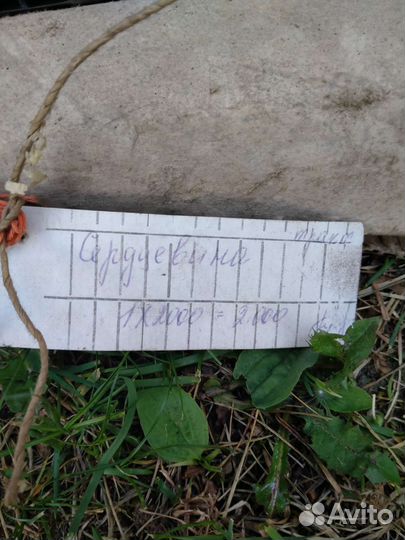 Сердцевина
1х2000 = 2000
Avito